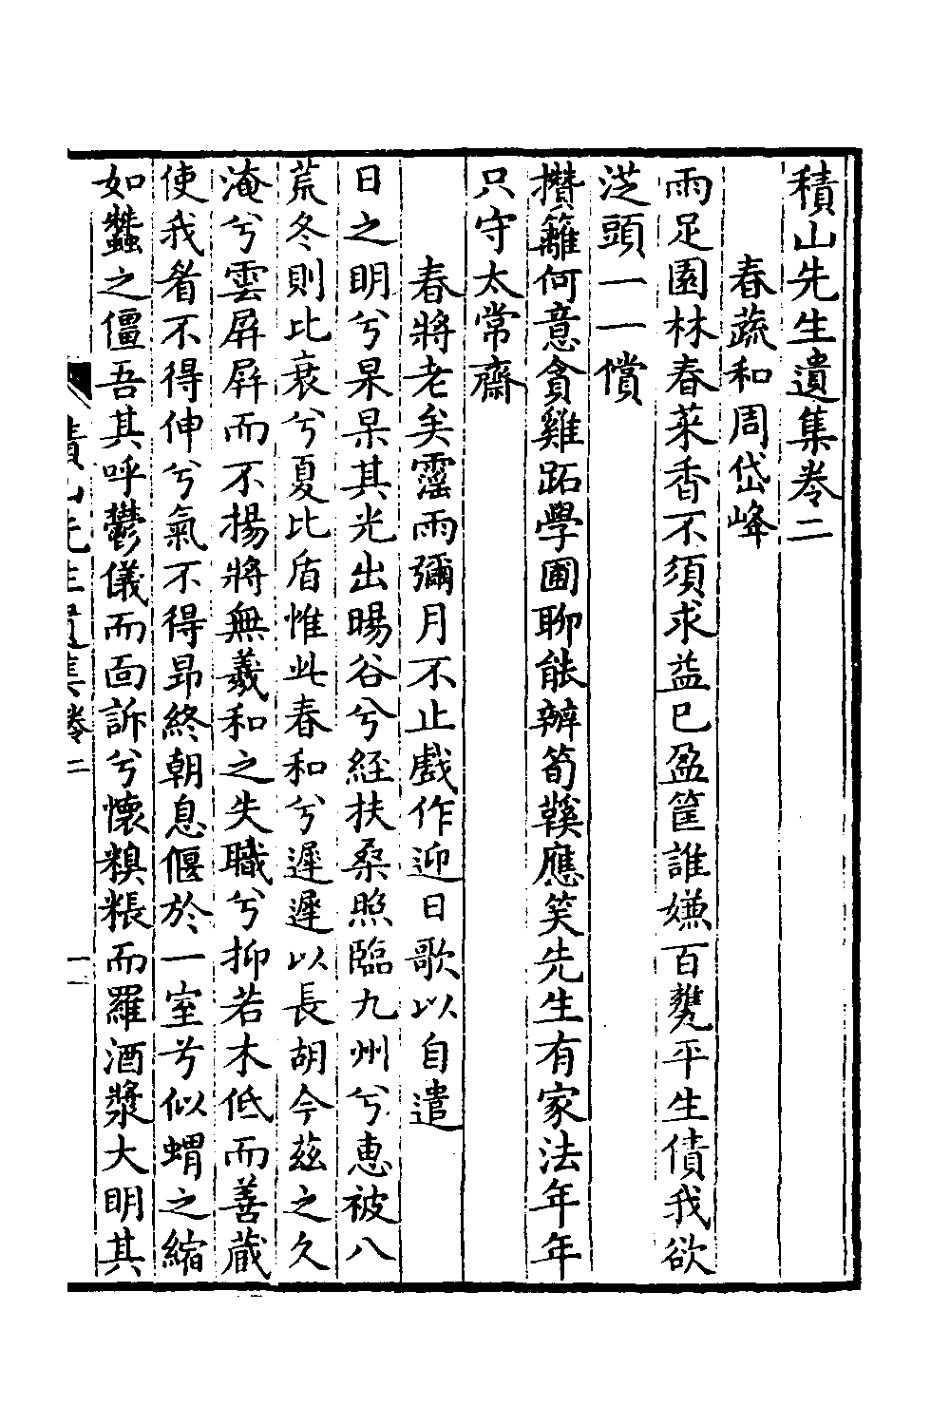 積山先生遺集卷二
春蔬和周岱峰
雨足園林春菜香不須求益已盈筐誰嫌百甕平生債我欲
從頭一一償
攢籬何意貪雞跖學圃聊能辨筍鞵應笑先生有家法年年
只守太常齋
春將老矣霪雨彌月不止戲作迎日歌以自遣
日之明兮杲杲其光出暘谷兮經扶桑照臨九州兮惠被八
荒冬則比衰兮夏比盾惟此春和兮遲遲以長胡今茲之久
淹兮雲屏屏而不揚將無羲和之失職兮抑若木低而善蔵
使我眘不得伸兮氣不得昂終朝息偃於一室兮似蝟之縮
如蠶之僵吾其呼鬱儀而面訴兮懷糗粻而羅酒漿大明其
積山先生遺集卷二 一